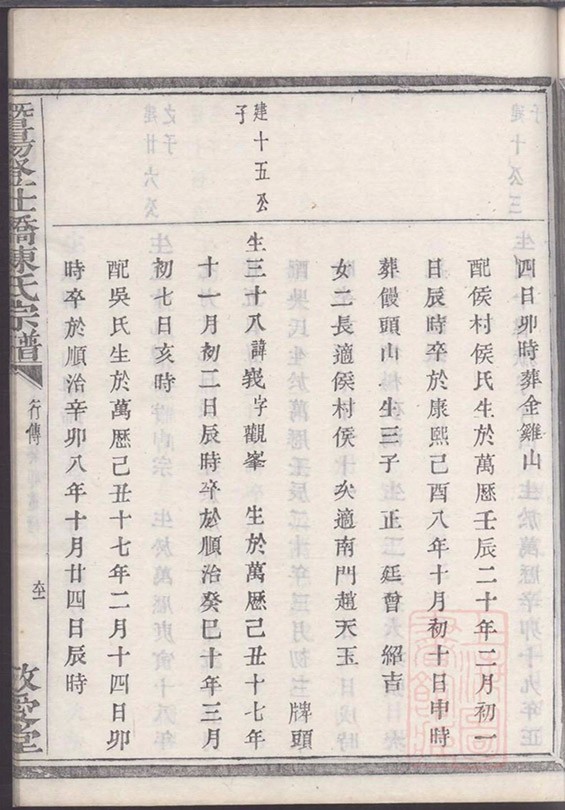 四日卯時葬金雞山
配侯村侯氏生於萬歷壬辰二十年二月初一
日辰時卒於康熙己酉八年十月初十日申時
葬饅頭山 生三子 正 廷曾 紹吉
女二長適侯村侯 次適南門趙天玉
牌頭
建十五公
子
生三十八諱峩字觀峯 生於萬歷己丑十七年
十一月初二日辰時卒於順治癸巳十年三月
初七日亥時
配吳氏生於萬歷己丑十七年二月十四日卯
時卒於順治辛卯八年十月廿四日辰時
暨陽登仕橋陳氏宗譜
行傳
敬愛堂